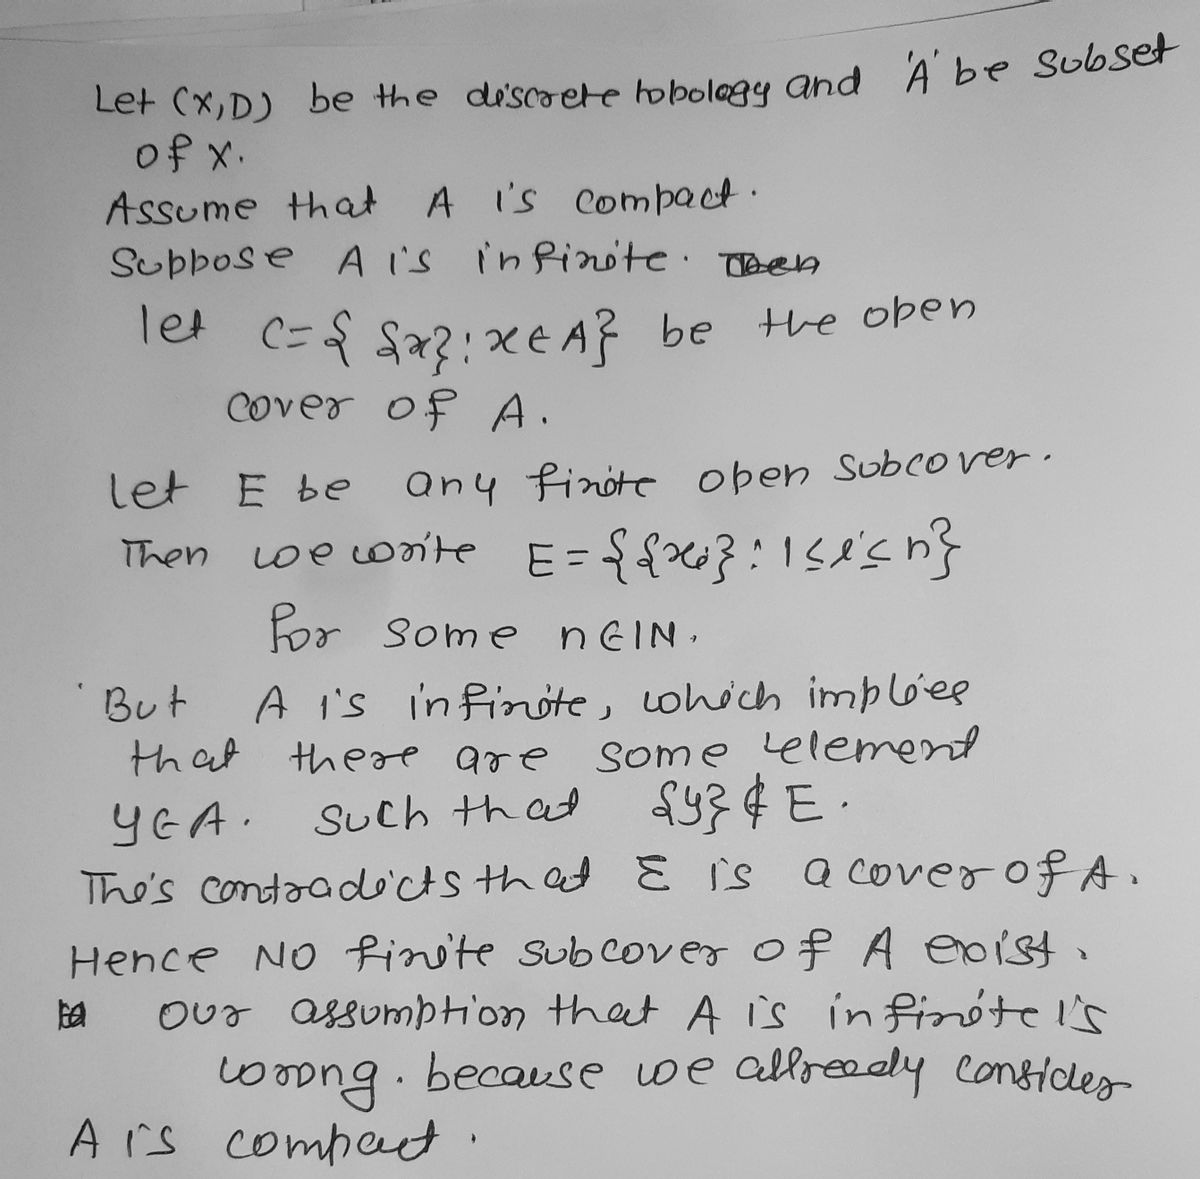 Let (X,D) be the discrete tobology and 'A' be subset
of X.
Assume that A is compact.
Suppose A is infinite. Then
let C={ {x}: x∈A} be the open
cover of A.
let E be any finite open subcover.
Then we write E={{xi}: 1≤i≤n}
for some n∈IN.
But A is infinite, which implies
that there are some element
y∈A. such that {y}∉E.
This contradicts that E is a cover of A.
Hence NO finite subcover of A exist.
our assumption that A is infinite is
wrong. because we allready consider
A is compact.